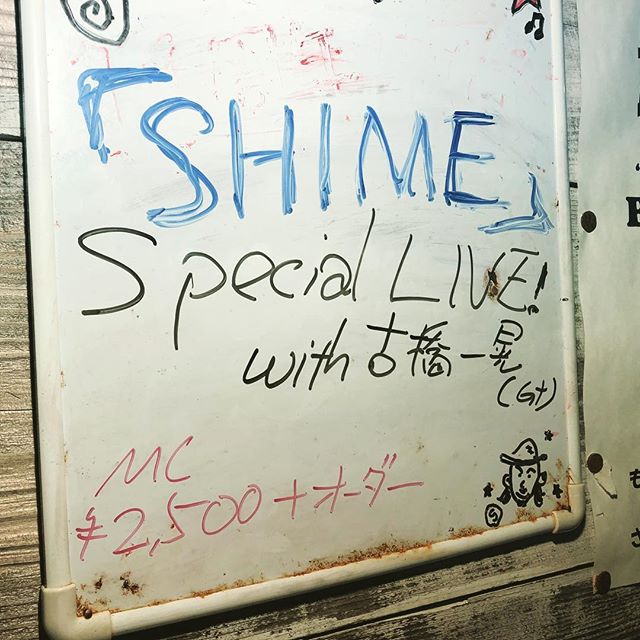 「SHIME」
Special LIVE!
with 古橋一晃
(Gt)
MC
¥2,500+オーダー